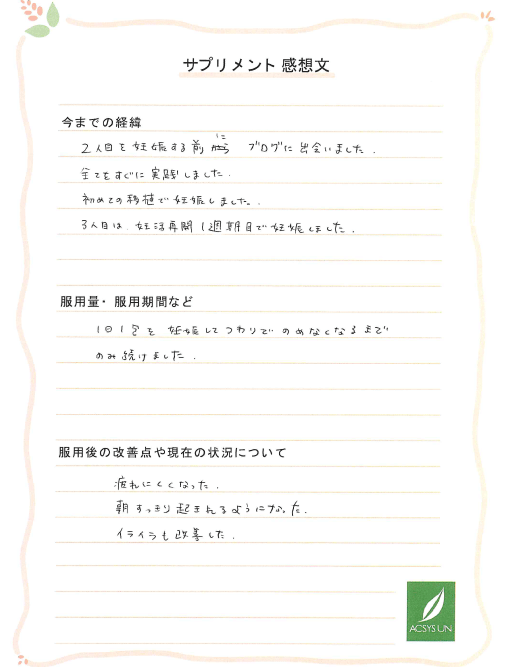 サプリメント 感想文
今までの経緯
2人目を妊娠する前に ブログに出会いました.
全てをすぐに実践しました.
初めての移植で妊娠しました.
3人目は、妊活再開1週期目で妊娠しました.
服用量・服用期間など
1日1包を 妊娠してつわりでのめなくなるまで
のみ続けました.
服用後の改善点や現在の状況について
疲れにくくなった.
朝すっきり起きれるようになった.
イライラも改善した.
ACSYS UN